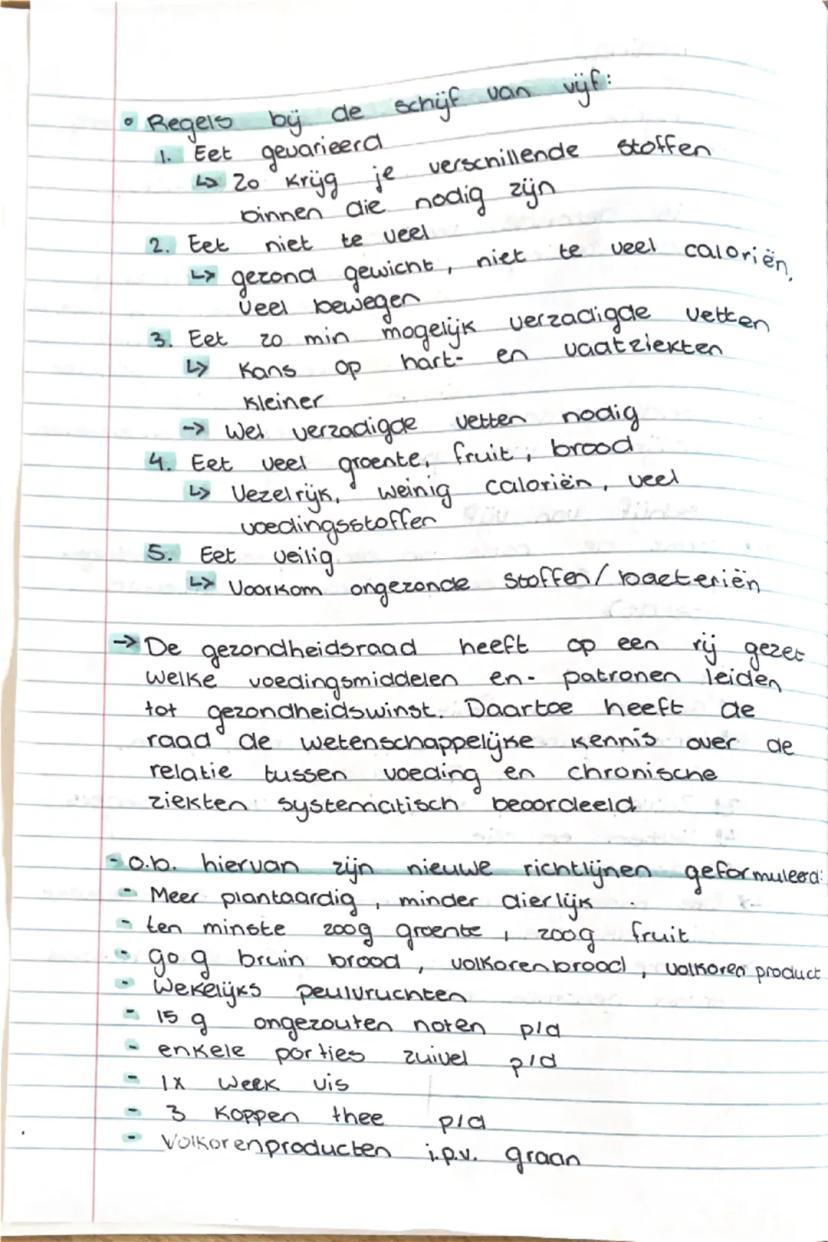 ° Regels bij de schijf van vijf:
1. Eet gevarieerd
↳ Zo krijg je verschillende stoffen
binnen die nodig zijn
2. Eet niet te veel
↳ gezond gewicht, niet te veel caloriën,
veel bewegen
3. Eet zo min mogelijk verzadigde vetten
↳ Kans op hart- en vaatziekten
kleiner
→ Wel verzadigde vetten nodig
4. Eet veel groente, fruit, brood
↳ Vezelrijk, weinig caloriën, veel
voedingsstoffen
5. Eet veilig
↳ Voorkom ongezonde stoffen/bacteriën
→ De gezondheidsraad heeft op een rij gezet
welke voedingsmiddelen en- patronen leiden
tot gezondheidswinst. Daartoe heeft de
raad de wetenschappelijke kennis over de
relatie tussen voeding en chronische
ziekten systematisch beoordeeld
- o.b. hiervan zijn nieuwe richtlijnen geformuleerd:
- Meer plantaardig, minder dierlijk.
- ten minste 200g groente, 200g fruit
- 90 g bruin brood, volkorenbrood, volkoren product
- Wekelijks peulvruchten
- 15 g ongezouten noten p/d
- enkele porties zuivel p/d
- 1x week vis
- 3 koppen thee p/d
- Volkorenproducten i.p.v. graan